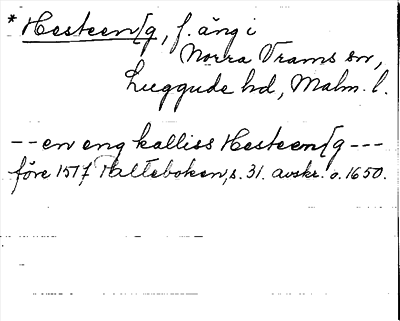 * Hesteen[g, f. äng i
Norra Vrams sn,
Luggude hd, Malm. l.
-- en eng kalliss Hesteen[g ---
före 1517 Palteboken, s. 31. avskr. o. 1650.